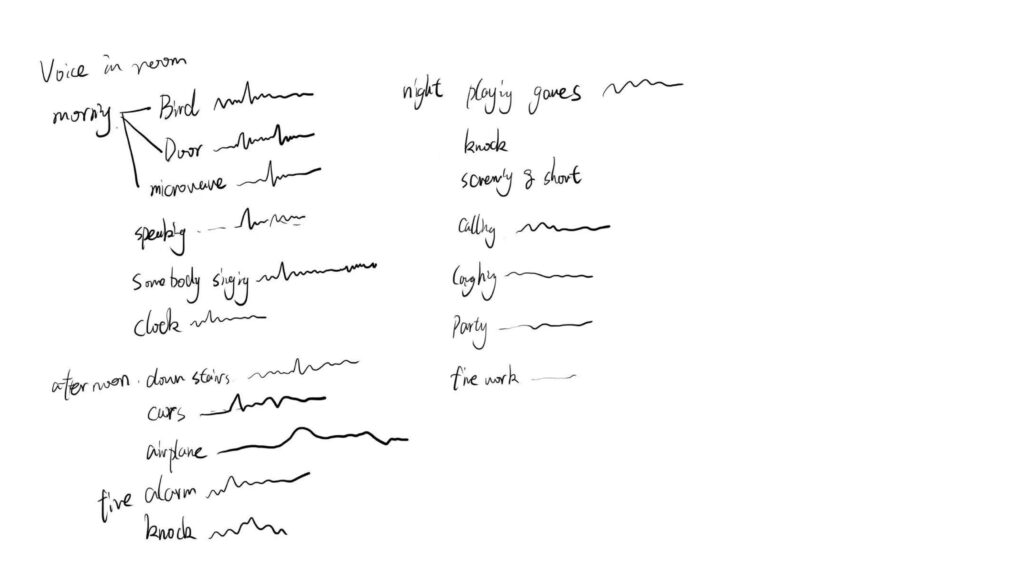 Voice in room
morning Bird
Door
microwave
speaking
Somebody singing
Clock
afternoon. down stairs
cars
airplane
fire alarm
knock
night playing games
knock
& short
Calling
Coughing
Party
fire work